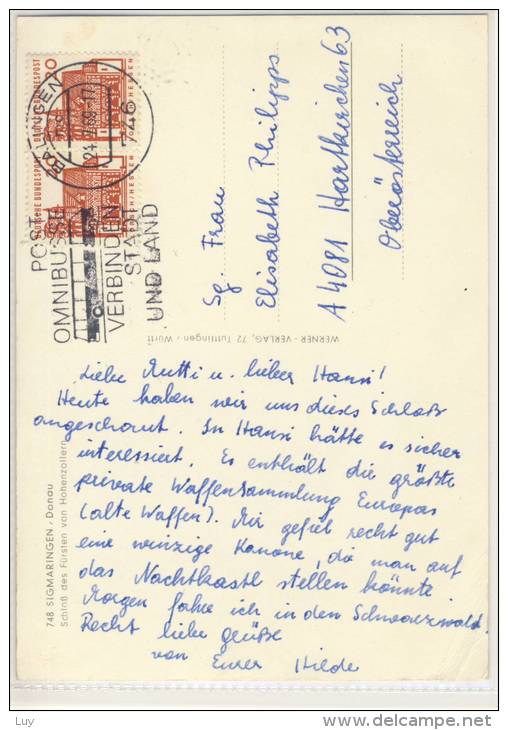 Liebe Mutti u. lieber Hansi!
Heute haben wir uns dieses Schloß
angeschaut. Dn Hansi hätte es sicher
interessiert. Es enthält die größte
private Waffensammlung Europas
(alte Waffen). Mir gefiel recht gut
eine winzige Kanone, die man auf
das Nachtkastl stellen könnte
Morgen fahre ich in den Schwarzwald.
Recht liebe Grüße
von Eurer Hilde
Sg. Frau
Elisabeth Philipps
A 4081 Hartkirchen 63
Oberösterreich
WERNER - VERLAG, 72 Tuttlingen - Württ
748 SIGMARINGEN / Donau
Schloß des Fürsten von Hohenzollern
DEUTSCHE BUNDESPOST
20
DEUTSCHE BUNDESPOST
746
POST
OMNIBUSSE
VERBINDEN
STADT
UND LAND
Luy
www.delcampe.net